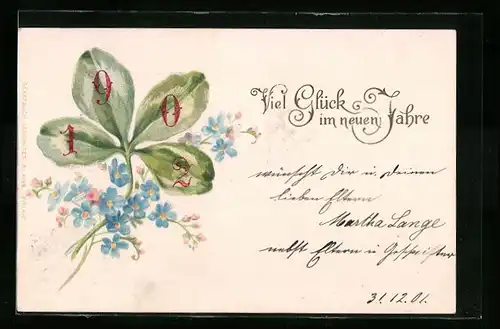 1 9 0 2
Viel Glück
im neuen Jahre
wünscht Dir u. Deinen
lieben Eltern
Martha Lange
nebst Eltern u Geschwister
31.12.01.